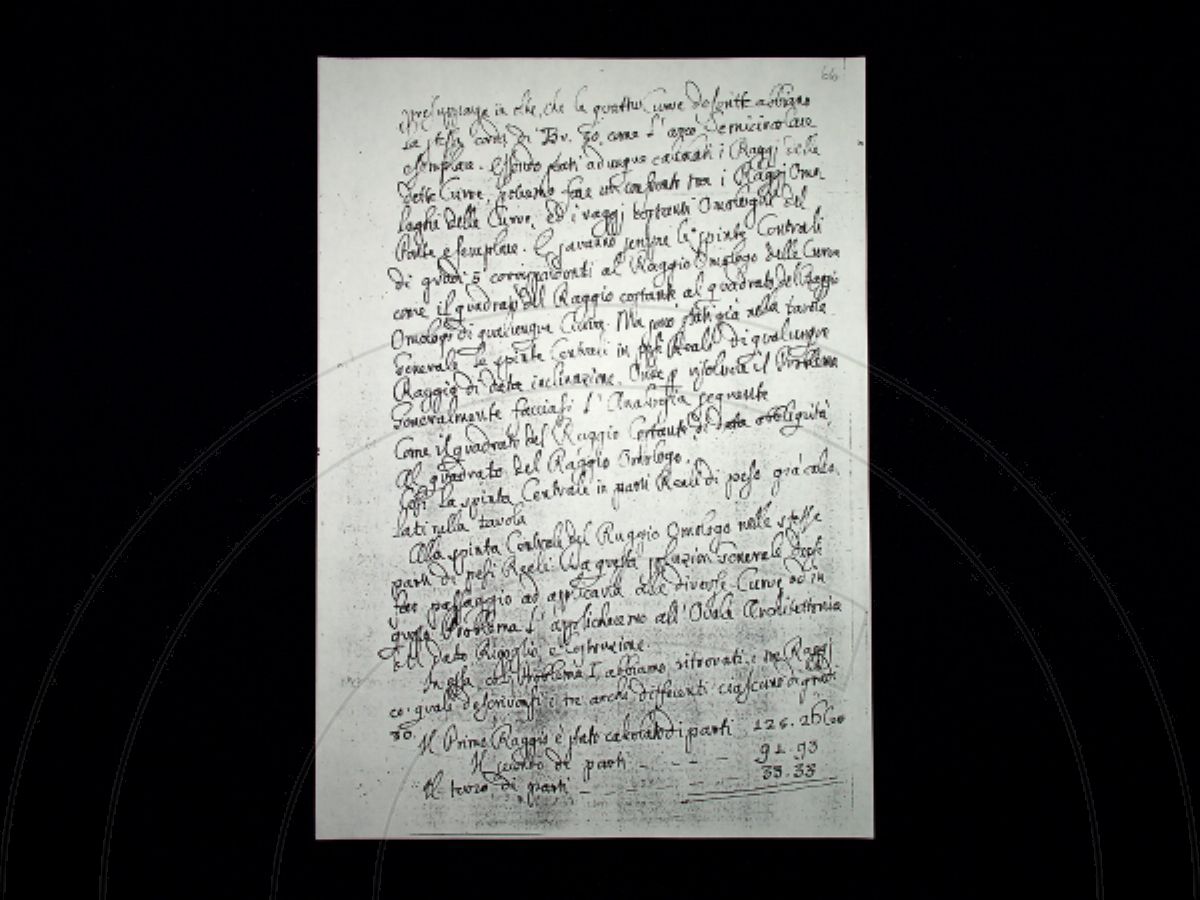 66
in oltre, che le quattro Curve descritte abbiano
la stessa corda di Br. 30 come l'arco Semicircolare
esemplare. Essendo stati adunque calcolati i Raggi delle
dette Curve, potremo fare un confronto tra i Raggi Omo
loghi delle Curve, ed i raggi costanti Omologhi del
Ponte esemplare. E saranno sempre le spinte Centrali
di gradi 5 corrispondenti al Raggio Omologo delle Curve
come il quadrato del Raggio costante al quadrato del Raggio
Omologo di qualunque Curva. Ma sono state già nella tavola
Generale le spinte Centrali in Reali di qualunque
Raggio di data inclinazione. Onde risolvere il Problema
Generalmente facciasi l'Analogia seguente
Come il quadrato del Raggio Costante di data obbliquità
Al quadrato del Raggio Omologo.
Così la spinta Centrale in parti Reali di peso già calco
lati nella tavola
Alla spinta Centrale del Raggio Omologo nelle stesse
parti di pesi Reali. Da questa soluzione Generale
fare passaggio ad applicarla alle diverse Curve ed in
questo Problema l'applicheremo all'Ovale Architettonica
del dato Rigoglio e Costruzione.
In essa, col Problema I, abbiamo ritrovati i tre Raggi
co' quali descrivonsi i tre archi differenti ciascuno di gradi
30.
Il Primo Raggio è stato calcolato di parti 126.
Il secondo di parti - - - - 92.93
Il terzo di parti - - - - 33.33